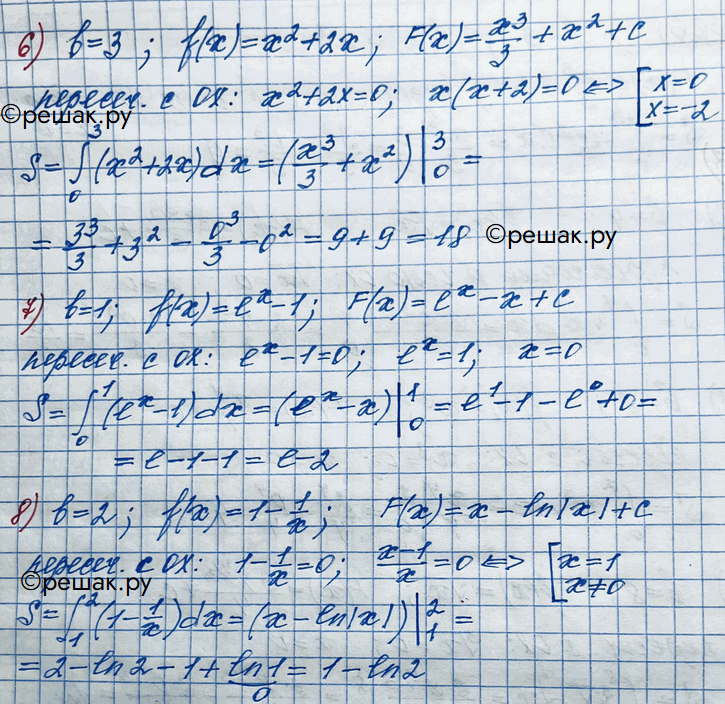 6) b=3 ; f(x)=x²+2x ; F(x)=x³/3+x²+c
пересеч. с OX: x²+2x=0; x(x+2)=0 <=> [x=0 x=-2
©решак.ру
S=∫₀³(x²+2x)dx=(x³/3+x²)|₀³=
=3³/3+3²-0³/3-0²=9+9=18 ©решак.ру
7) b=1; f(x)=e^x-1; F(x)=e^x-x+c
пересеч. с OX: e^x-1=0; e^x=1; x=0
S=∫₀¹(e^x-1)dx=(e^x-x)|₀¹=e¹-1-e⁰+0=
=e-1-1=e-2
8) b=2; f(x)=1-1/x; F(x)=x-ln|x|+c
пересеч. с OX: 1-1/x=0; (x-1)/x=0 <=> [x=1 x≠0
©решак.ру
S=∫₁²(1-1/x)dx=(x-ln|x|)|₁²=
=2-ln2-1+ln1=1-ln2
0